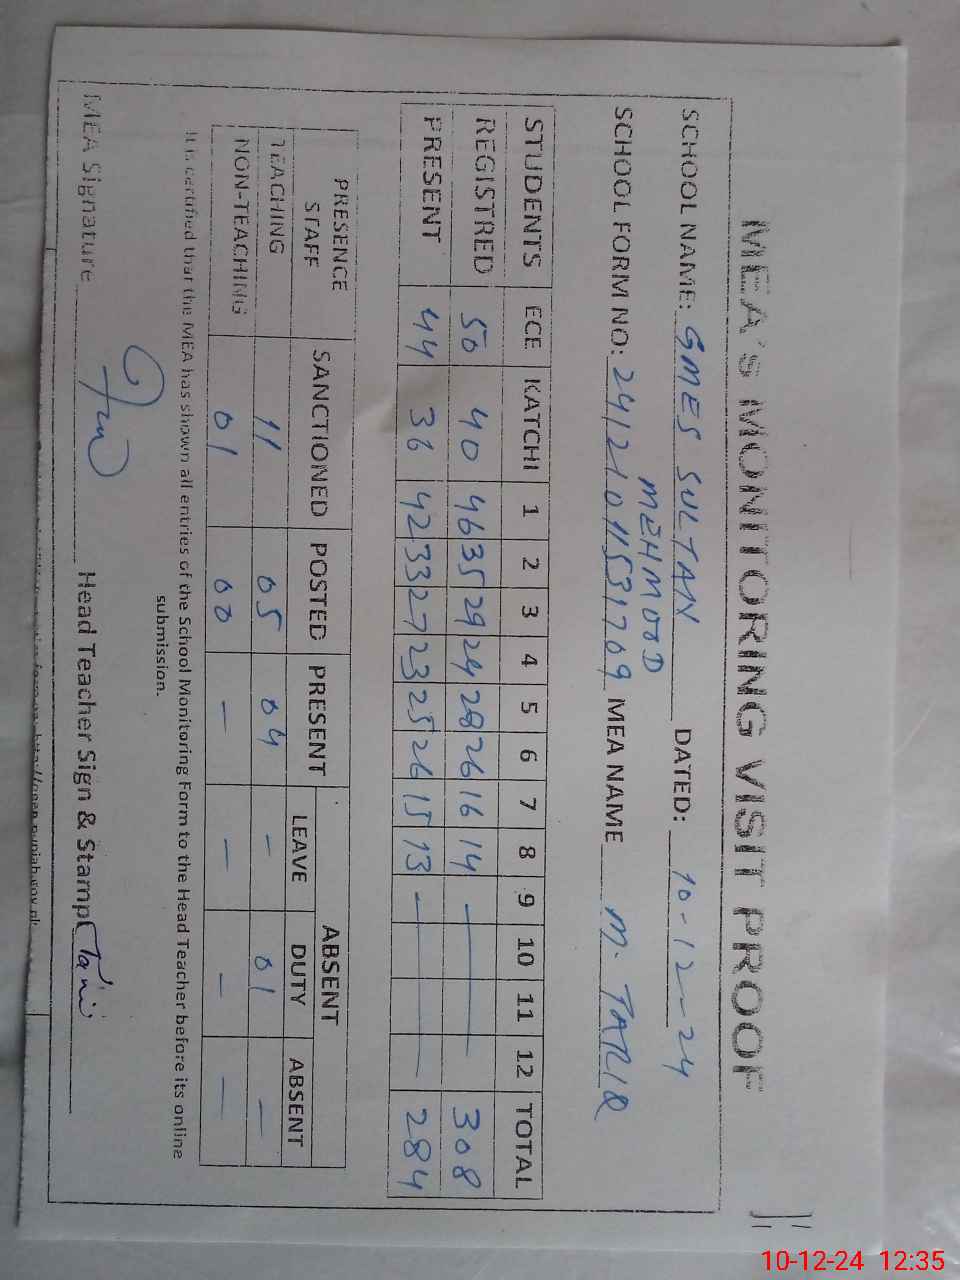 MEA's MONITORING VISIT PROOF
SCHOOL NAME: GMES SULTAN DATED: 10-12-24
MEHMOOD
SCHOOL FORM NO: 24121011531709 MEA NAME M. TARIQ
STUDENTS ECE KATCHI 1 2 3 4 5 6 7 8 9 10 11 12 TOTAL
REGISTRED 50 40 46 35 29 24 28 26 16 14 — 308
PRESENT 44 36 42 33 27 23 25 26 15 13 — 284
PRESENCE STAFF SANCTIONED POSTED PRESENT ABSENT
LEAVE DUTY ABSENT
TEACHING 11 05 04 - 01 —
NON-TEACHING 01 00 — — — —
It is certified that the MEA has shown all entries of the School Monitoring Form to the Head Teacher before its online
submission.
MEA Signature Head Teacher Sign & Stamp
10-12-24 12:35